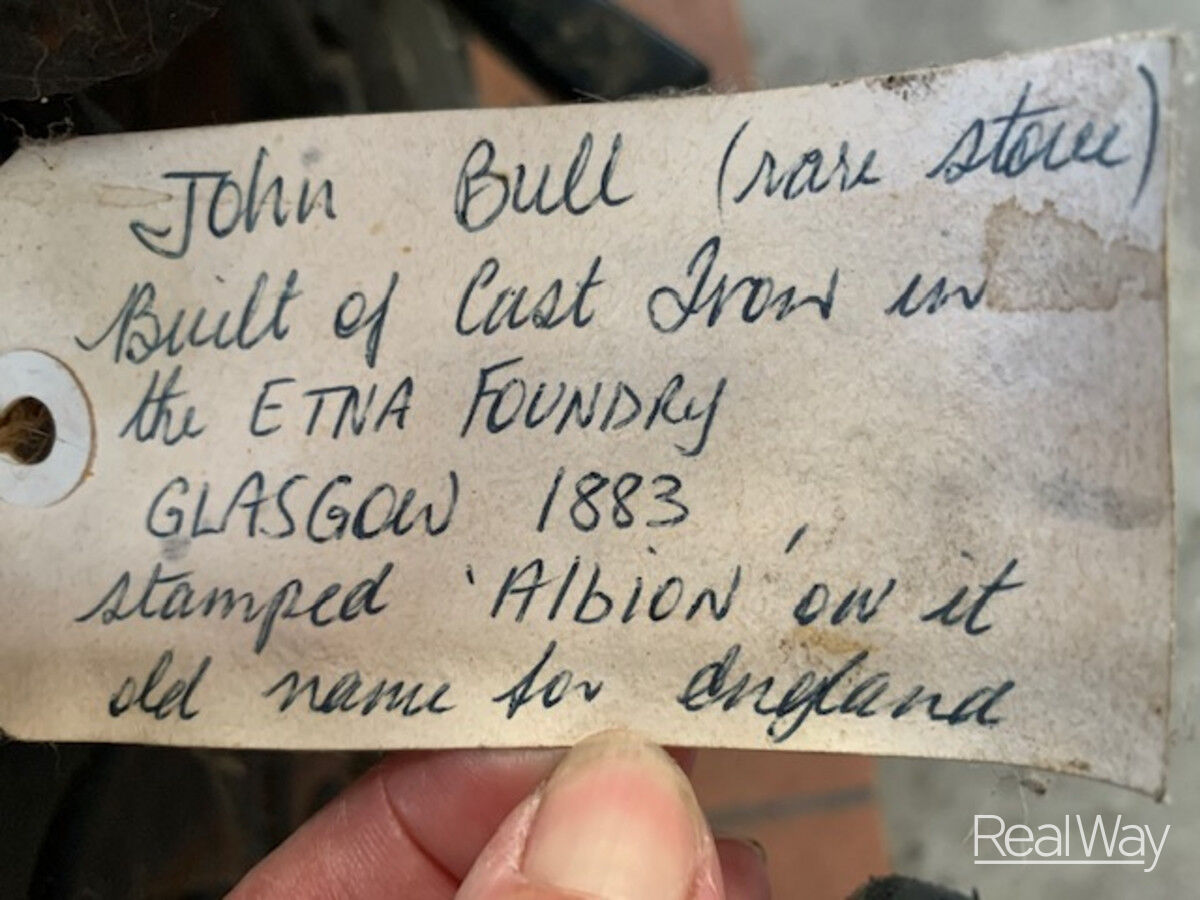 John Bull (rare stove)
Built of Cast Iron in
the ETNA FOUNDRY
GLASGOW 1883
stamped 'Albion' on it
old name for England
RealWay